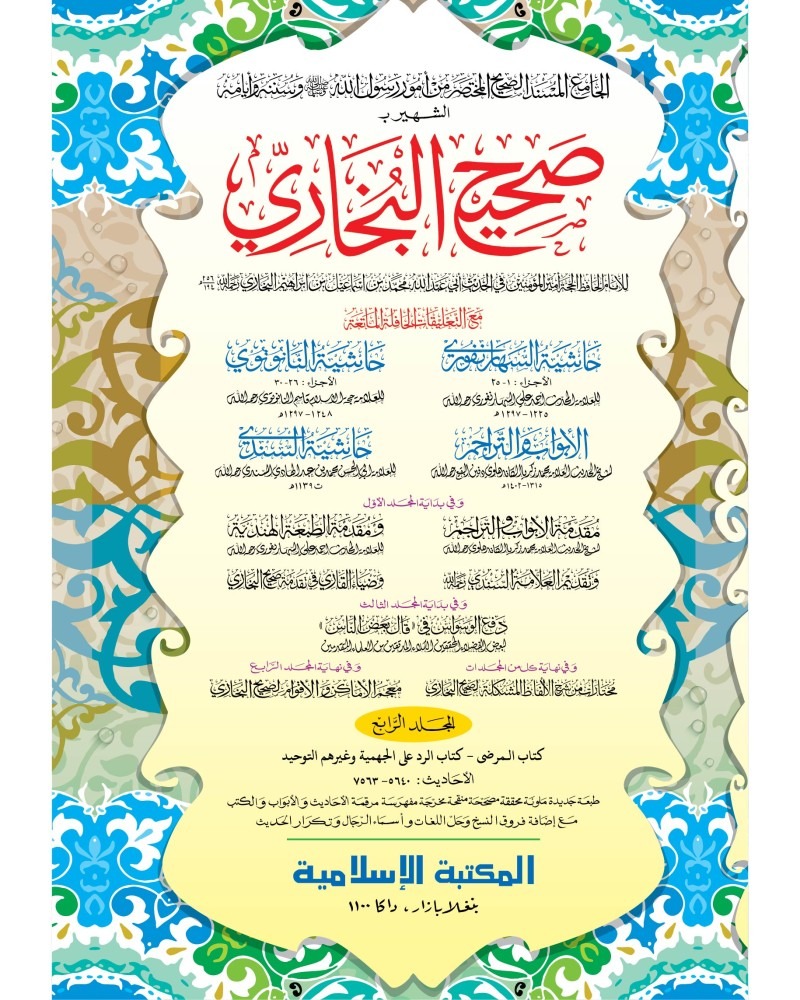 الجامع المسند الصحيح المختصر من أمور رسول الله ﷺ وسننه وأيامه
الشهير بـ
صَحِيحُ البُخَارِيّ
للإمام الحافظ الحجة أمير المؤمنين في الحديث أبي عبد الله محمد بن إسماعيل بن إبراهيم البخاري رحمه الله
مع التعليقات الحافلة الماتعة
حاشية السهارنفوري
الأجزاء: ١-٢٥
للعلامة المحدث أحمد علي السهارنفوري رحمه الله
١٢٢٥-١٢٩٧هـ
حاشية النانوتوي
الأجزاء: ٢٦-٣٠
للعلامة حجة الإسلام قاسم النانوتوي رحمه الله
١٢٤٨-١٢٩٧هـ
الأبواب والتراجم
لشيخ الحديث العلامة محمد زكريا الكاندهلوي دفين البقيع رحمه الله
١٣١٥-١٤٠٢هـ
حاشية السندي
للعلامة أبي الحسن محمد بن عبد الهادي السندي رحمه الله
ت ١١٣٩هـ
وفي بداية المجلد الأول
مقدمة الأبواب والتراجم
لشيخ الحديث العلامة محمد زكريا الكاندهلوي رحمه الله
ومقدمة الطبعة الهندية
للعلامة المحدث أحمد علي السهارنفوري رحمه الله
وتقديم العلامة السندي رحمه الله
وضياء القاري في تقدمة صحيح البخاري
وفي بداية المجلد الثالث
دفع الوسواس في «قال بعض الناس»
لبعض الفضلاء المحققين
من العلماء المتقدمين
وفي نهاية كل من المجلدات
مختارات من شرح الألفاظ المشكلة لصحيح البخاري
وفي نهاية المجلد الرابع
معجم الأماكن والأقوام لصحيح البخاري
المجلد الرابع
كتاب المرضى - كتاب الرد على الجهمية وغيرهم التوحيد
الأحاديث: ٥٦٤٠-٧٥٦٣
طبعة جديدة ملونة محققة مصححة منقحة مخرجة مفهرسة مرقمة الأحاديث والأبواب والكتب
مع إضافة فروق النسخ وحل اللغات وأسماء الرجال وتكرار الحديث
المكتبة الإسلامية
بنغلابازار، داكا ١١٠٠